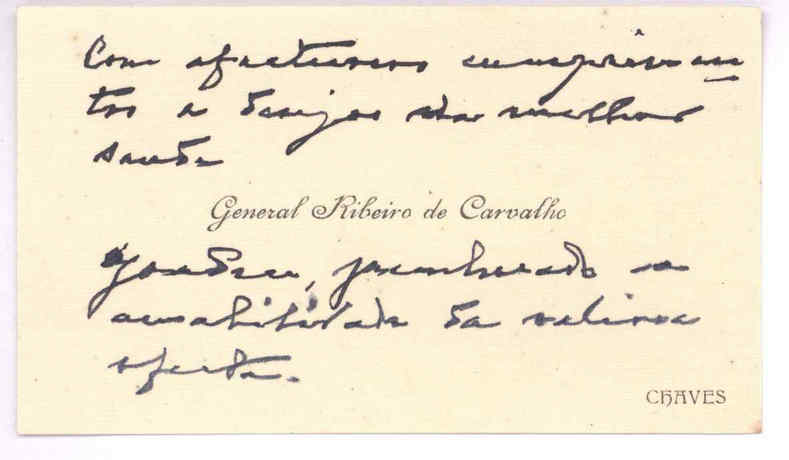 Com afectuosos cumprimen
tos e desejos da melhor
saude
General Ribeiro de Carvalho
penhorado a
amabilidade da valiosa
oferta.
CHAVES